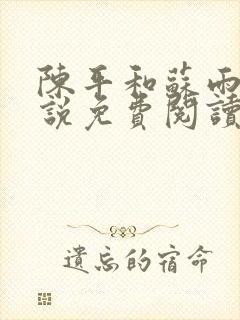 陳平和蘇雨
說免費閱讀
遺忘的宿命